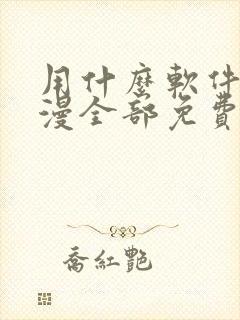 用什麼軟件
漫全部免費
喬紅艷